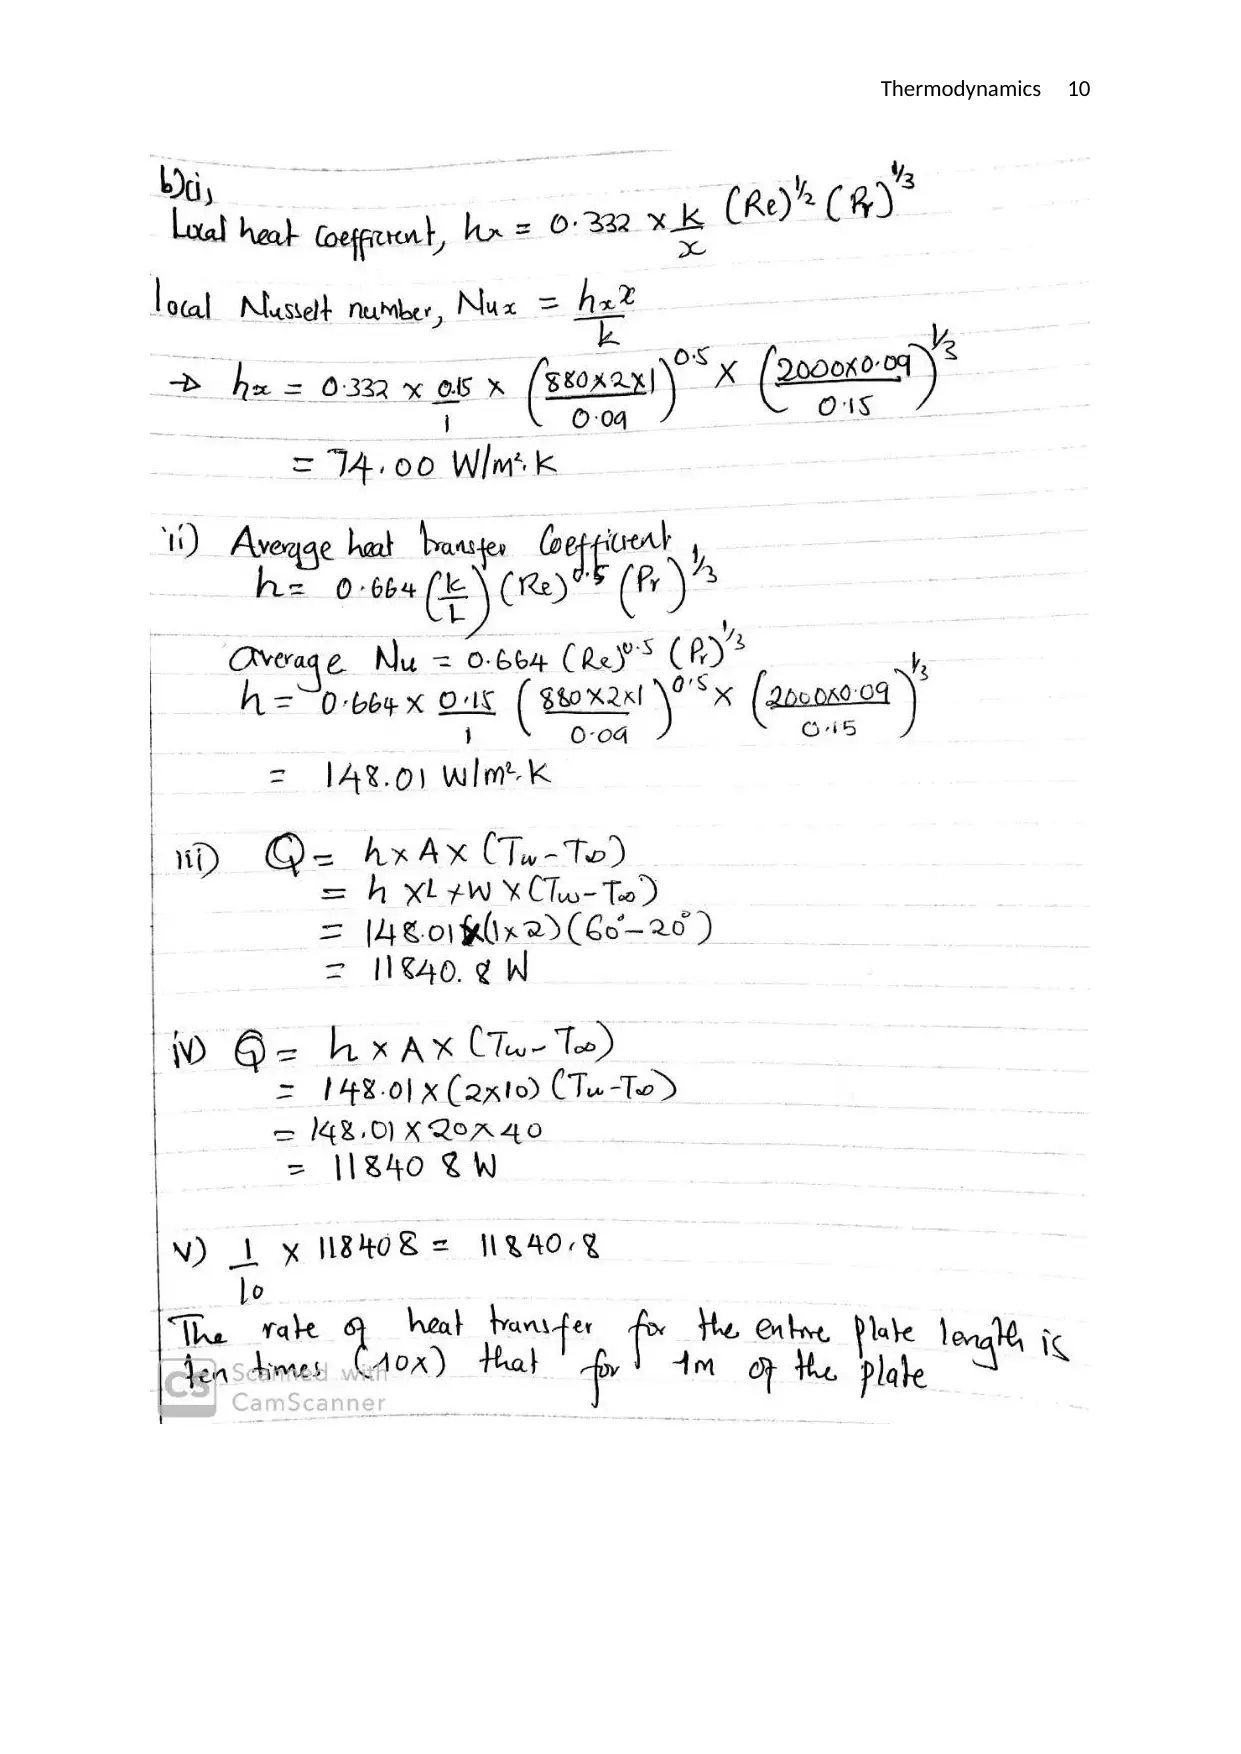 Thermodynamics 10
b)(i)
Local heat coefficient, hx = 0.332 × k/x (Re)^1/2 (Pr)^1/3
local Nusselt number, Nux = hx x/k
⇒ hx = 0.332 × 0.15/1 × (880×2×1/0.09)^0.5 × (2000×0.09/0.15)^1/3
= 74.00 W/m².K
ii) Average heat transfer Coefficient,
h = 0.664 (k/L) (Re)^0.5 (Pr)^1/3
average Nu = 0.664 (Re)^0.5 (Pr)^1/3
h = 0.664 × 0.15/1 (880×2×1/0.09)^0.5 × (2000×0.09/0.15)^1/3
= 148.01 W/m².K
iii) Q = h × A × (Tw - T∞)
= h × L × W × (Tw - T∞)
= 148.01 × (1 × 2) (60° - 20°)
= 11840.8 W
iv) Q = h × A × (Tw - T∞)
= 148.01 × (2×10) (Tw - T∞)
= 148.01 × 20 × 40
= 118408 W
v) 1/10 × 118408 = 11840.8
The rate of heat transfer for the entire plate length is
ten times (10x) that for 1m of the plate
CS Scanned with
CamScanner